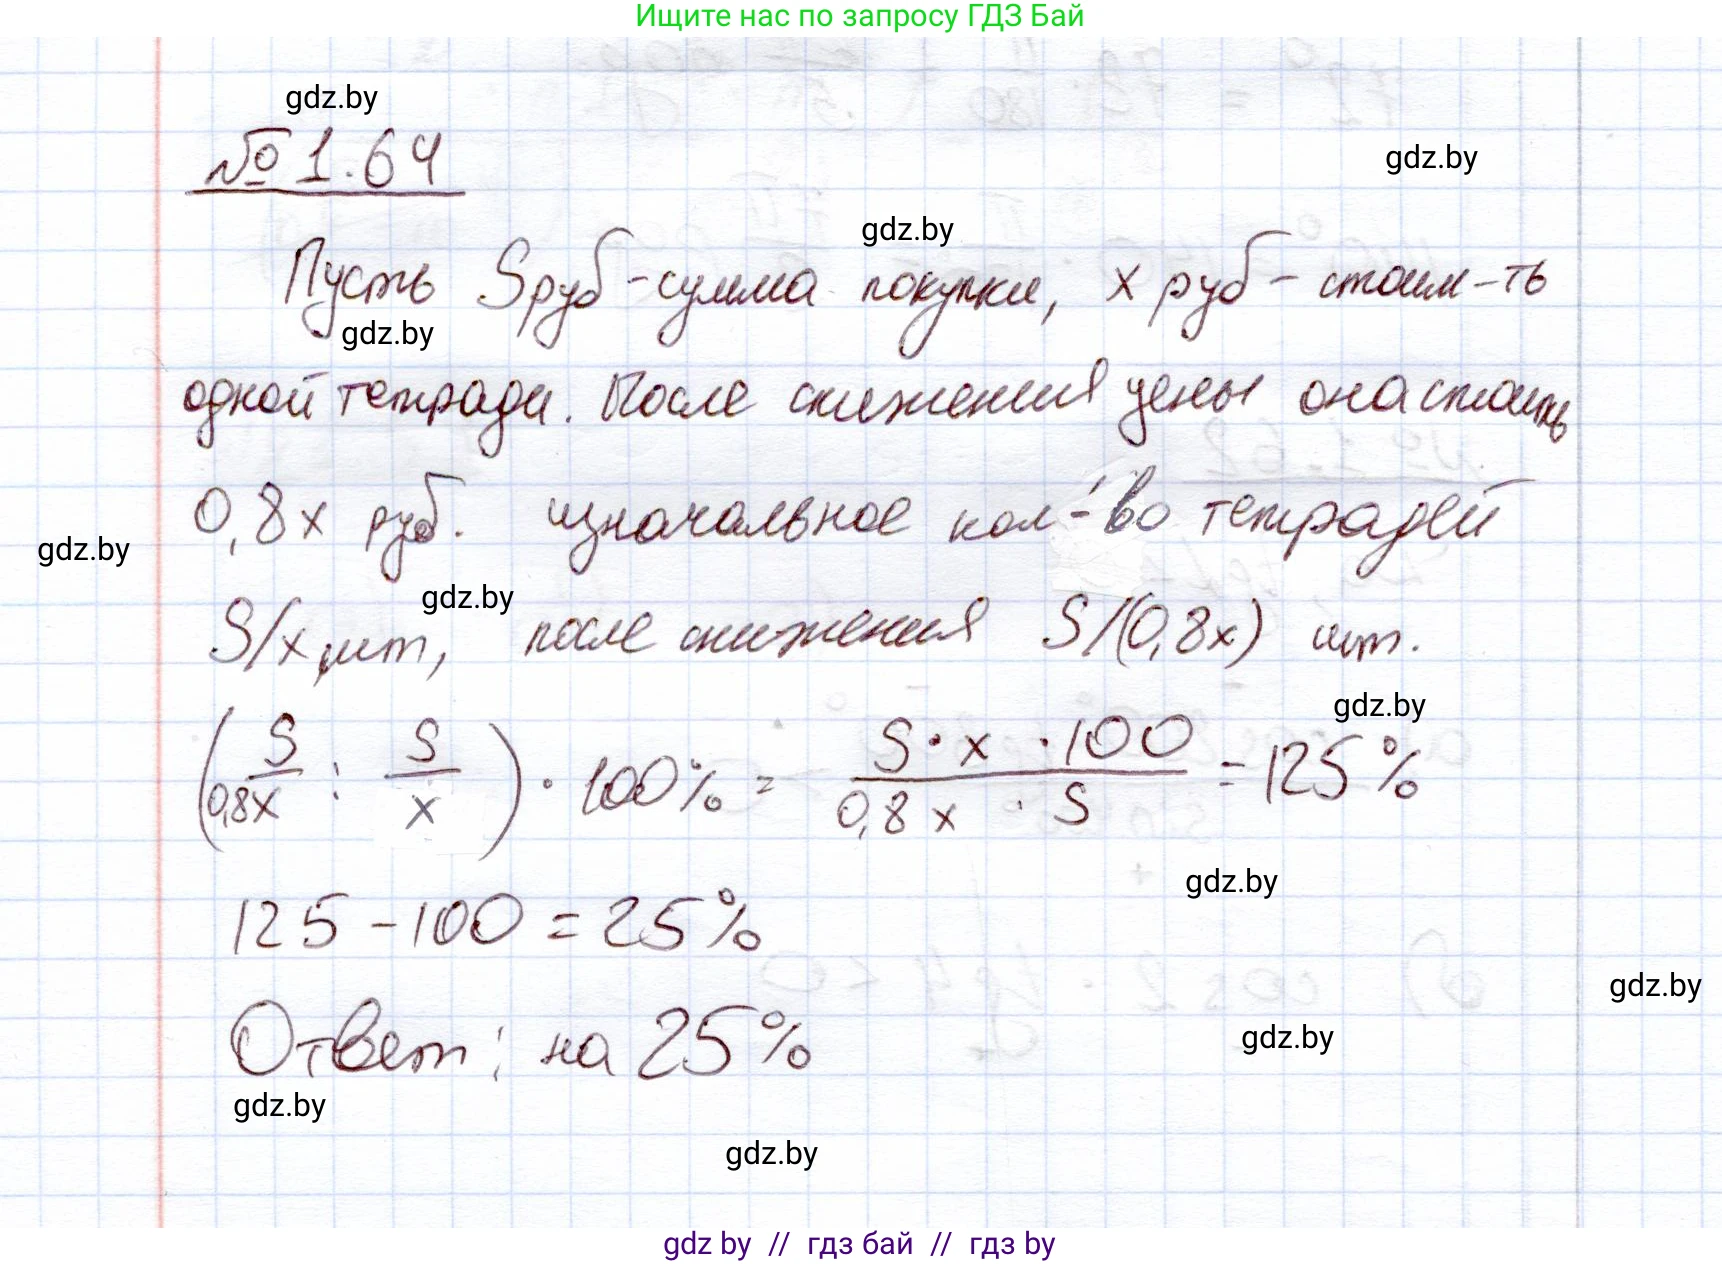 Ищите нас по запросу ГДЗ Бай
gdz.by
№ 1.64
gdz.by
gdz.by
Пусть S руб - сумма покупки, x руб - стоим-ть
gdz.by
одной тетради. После снижения цены она стоить
0,8x руб. изначальное кол-во тетрадей
gdz.by
gdz.by
S/x шт, после снижения S/(0,8x) шт.
gdz.by
(S/0,8x : S/x) · 100% = S · x · 100 / 0,8 x · S = 125%
gdz.by
125 - 100 = 25%
gdz.by
Ответ: на 25%
gdz.by
gdz.by
gdz.by
gdz by // гдз бай // гдз by